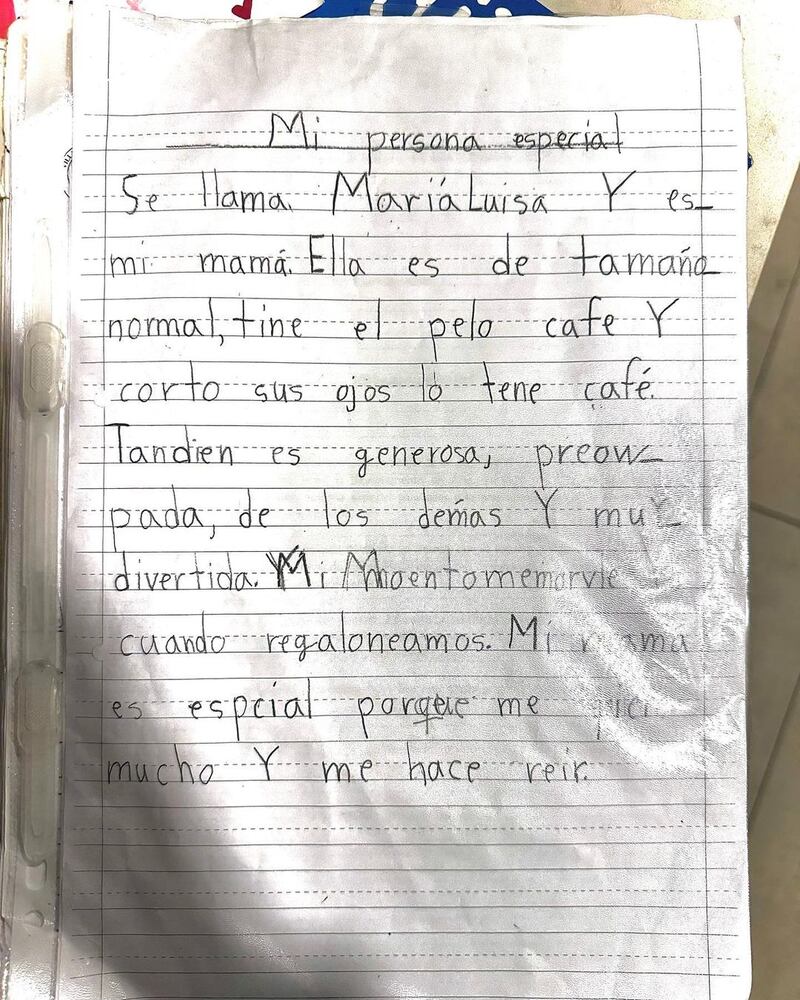 Mi persona especial
Se llama. Mariá Luisa Y es
mi mamá. Ella es de tamaño
normal, tine el pelo cafe Y
corto sus ojos lo tene café.
Tandien es generosa, preocu-
pada, de los demás Y muy
divertida. Mi
cuando regaloneamos. Mi mama
es espcial porque me
mucho Y me hace reir.